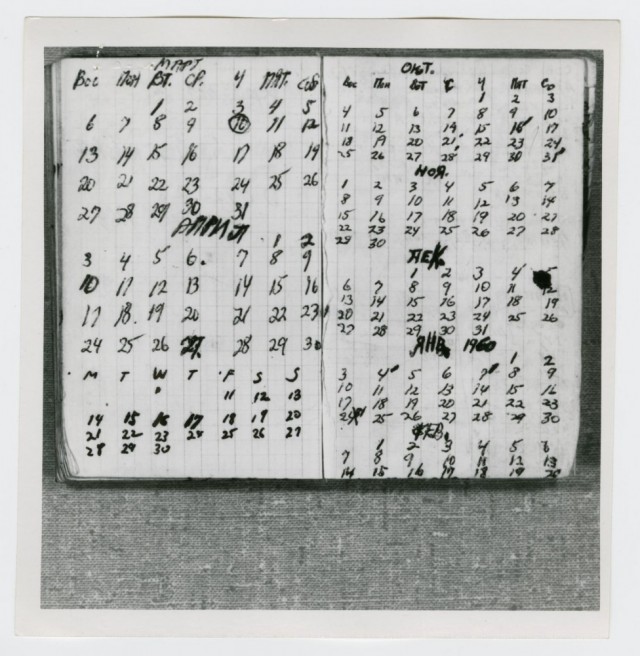 МАРТ
Вос Пон Вт. СР. Ч ПЯТ. Суб
1 2 3 4 5
6 7 8 9 10 11 12
13 14 15 16 17 18 19
20 21 22 23 24 25 26
27 28 29 30 31
АПРИЛ
1 2
3 4 5 6. 7 8 9
10 11 12 13 14 15 16
17 18. 19 20 21 22 23
24 25 26 27. 28 29 30
M T W T F S S
11 12 13
14 15 16 17 18 19 20
21 22 23 24 25 26 27
28 29 30
ОКТ.
Вос Пон Вот С Ч Пят Сб
1 2 3
4 5 6 7 8 9 10
11 12 13 14 15 16 17
18 19 20 21 22 23 24
25 26 27 28 29 30 31
НОЯ.
1 2 3 4 5 6 7
8 9 10 11 12 13 14
15 16 17 18 19 20 21
22 23 24 25 26 27 28
29 30
ДЕК.
1 2 3 4 5
6 7 8 9 10 11 12
13 14 15 16 17 18 19
20 21 22 23 24 25 26
27 28 29 30 31
ЯНВ. 1960
1 2
3 4 5 6 7 8 9
10 11 12 13 14 15 16
17 18 19 20 21 22 23
24 25 26 27 28 29 30
ФЕВ.
1 2 3 4 5 6
7 8 9 10 11 12 13
14 15 16 17 18 19 20